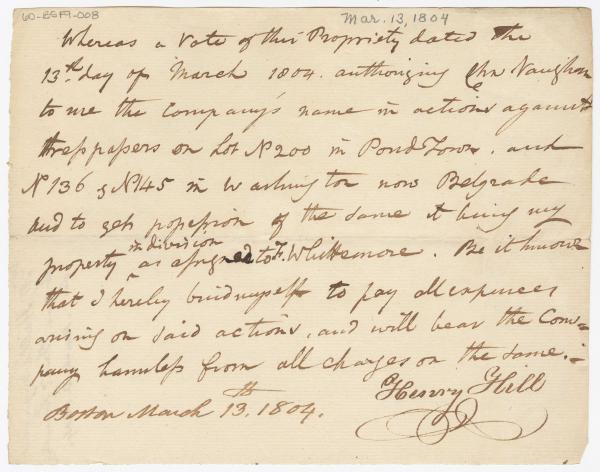 60-ESF9-008
Mar. 13, 1804
Whereas a Vote of this Propriety dated the
13th day of March 1804. authorizing Chs Vaughan
to use the Company's name in actions against
trespassers on Lot No 200 in Pond Town. and
No 136 & No 145 in Washington now Belgrade
and to get possession of the same it being my
in division
property as assigned to F. Whittemore. Be it known
that I hereby bind myself to pay all expences
arising on said actions, and will bear the Com=
pany harmless from all charges on the same.
Henry Hill
Boston March 13th. 1804.